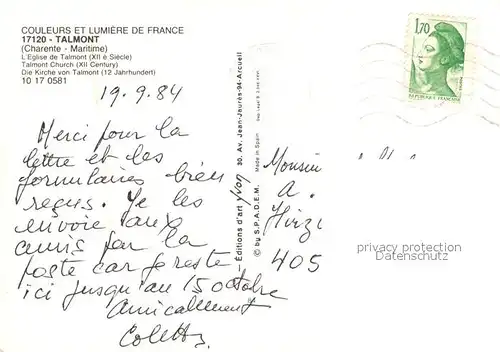 COULEURS ET LUMIÈRE DE FRANCE
17120 - TALMONT
(Charente - Maritime)
L'Eglise de Talmont (XII è Siècle)
Talmont Church (XII Century)
Die Kirche von Talmont (12 Jahrhundert)
10 17 0581
19.9.84
Merci pour la
lettre et les
formulaires bien
reçus. Je les
envoie aux
amis par la
poste car je reste
ici jusqu'au 15 octobre
Amicalement
Editions d'art yvon 30, Av. Jean-Jaurès-94-Arcueil
© by S.P.A.D.E.M. Made in Spain
1,70
REPUBLIQUE FRANCAISE
Monsieur
A.
405
privacy protection
Datenschutz